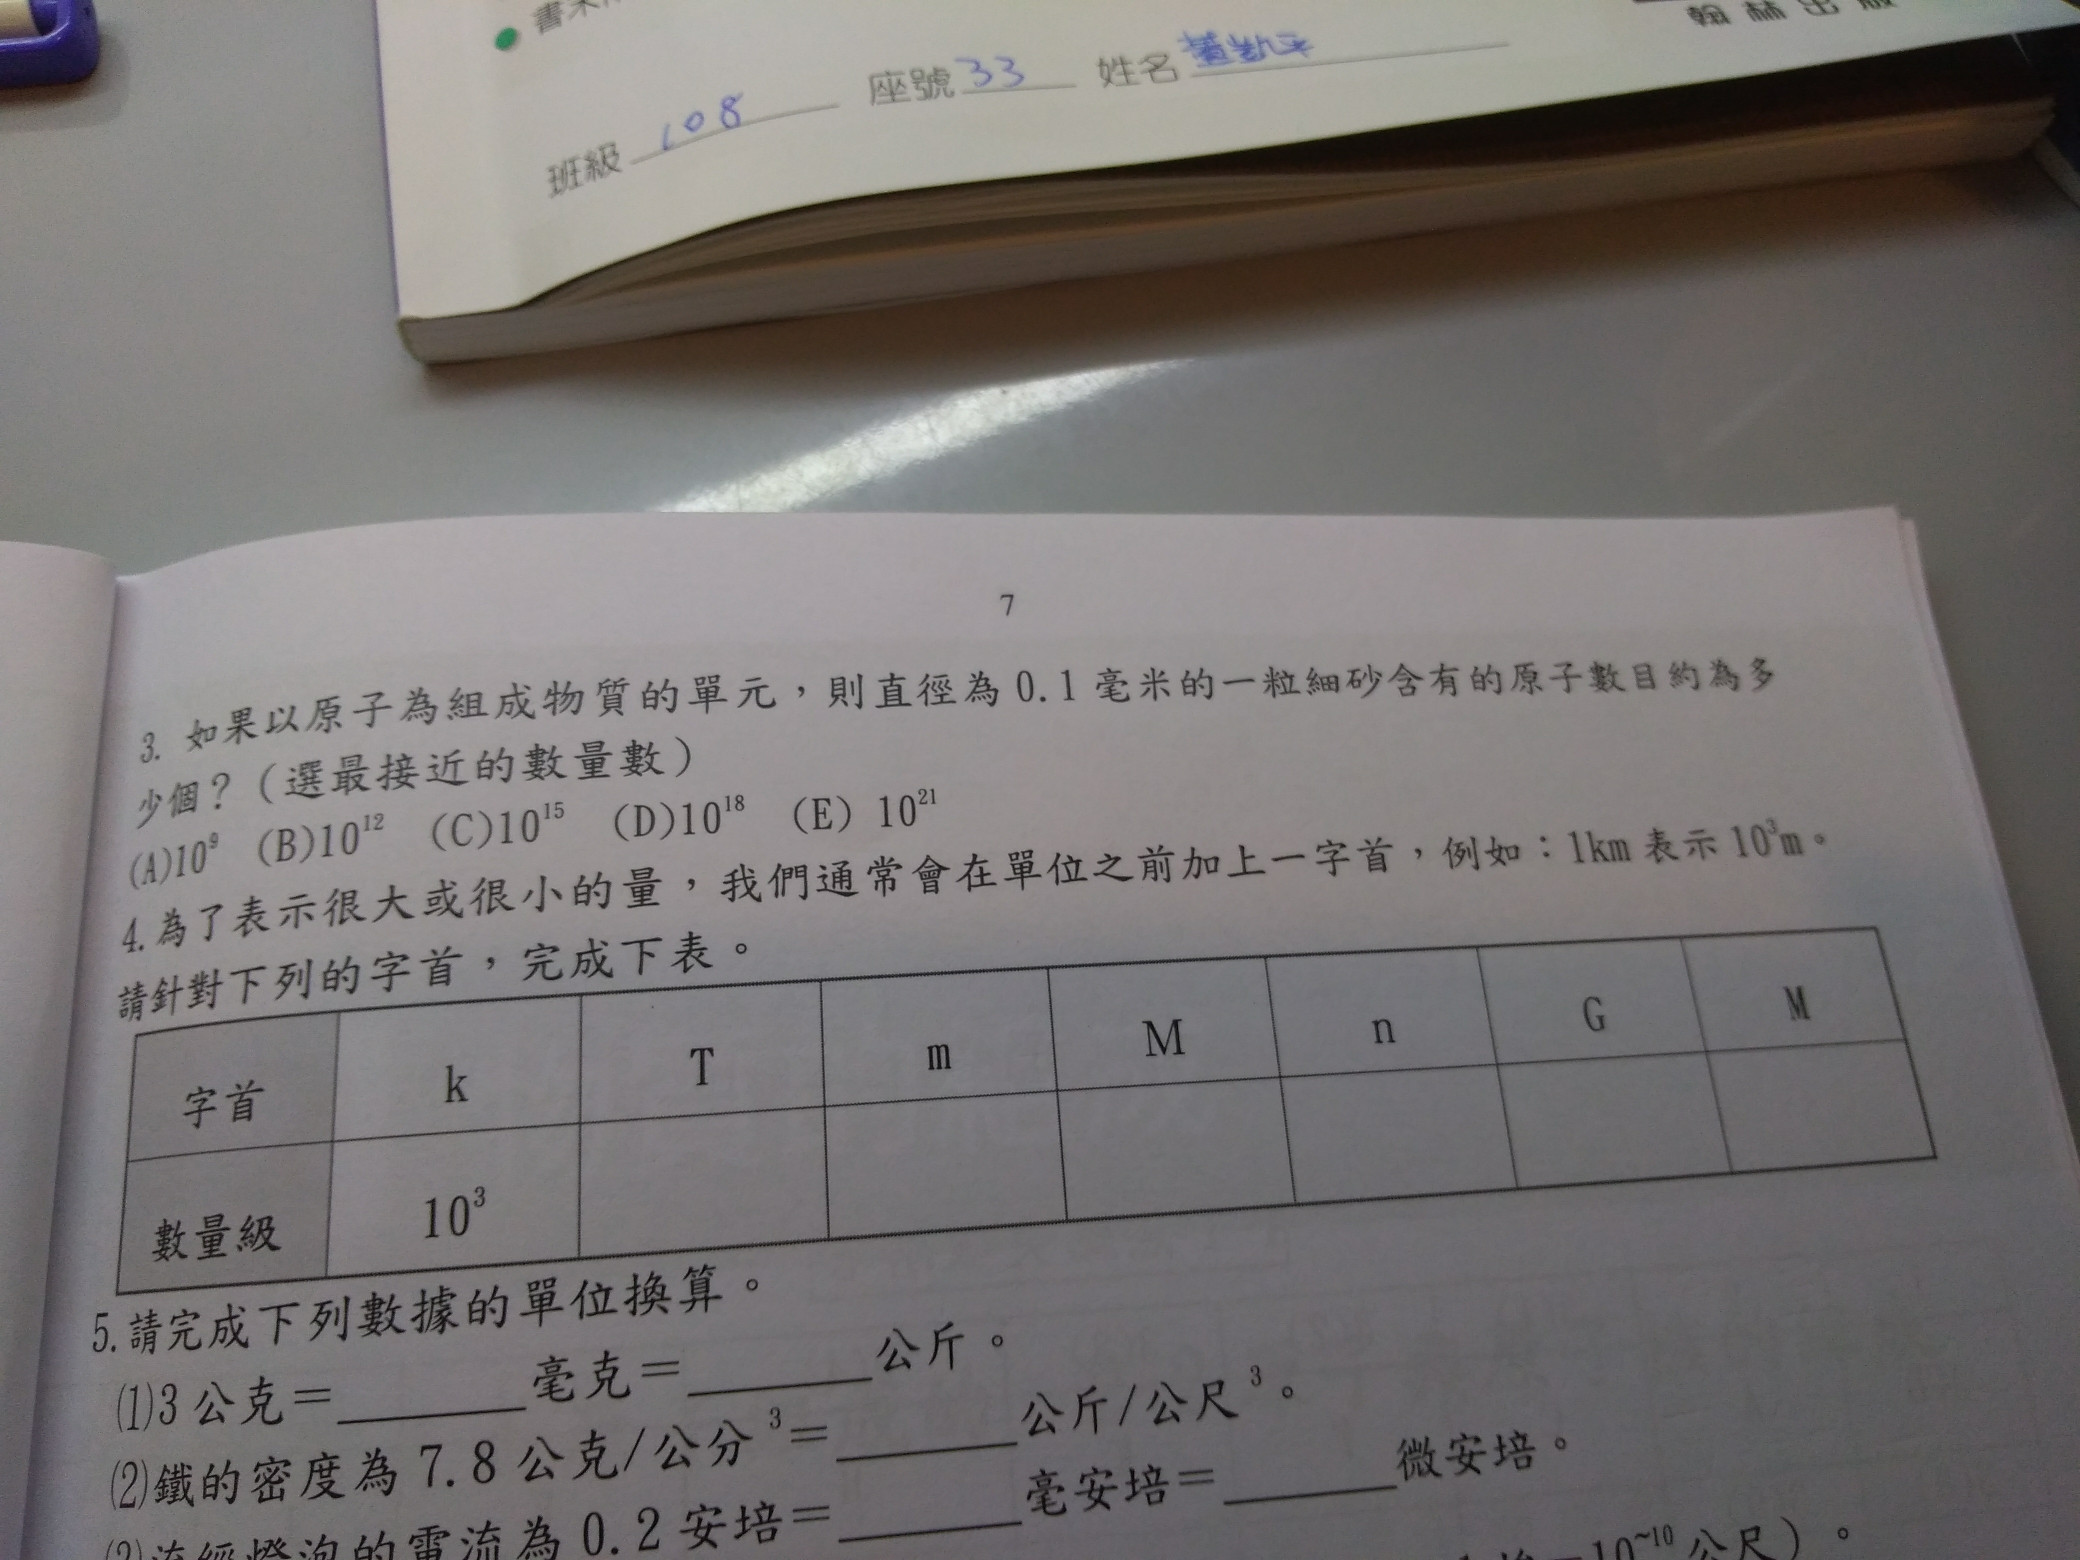 翰林出版
班級 108 座號 33 姓名
7
3. 如果以原子為組成物質的單元，則直徑為 0.1 毫米的一粒細砂含有的原子數目約為多
少個？（選最接近的數量數）
(A)10⁹ (B)10¹² (C)10¹⁵ (D)10¹⁸ (E) 10²¹
4.為了表示很大或很小的量，我們通常會在單位之前加上一字首，例如：1km 表示 10³m。
請針對下列的字首，完成下表。
字首 k T m M n G M
數量級 10³
5.請完成下列數據的單位換算。
(1)3 公克＝______毫克＝______公斤。
(2)鐵的密度為 7.8 公克/公分³＝______公斤/公尺³。
(3)流經燈泡的電流為 0.2 安培＝______毫安培＝______微安培。
10~10 公尺）。